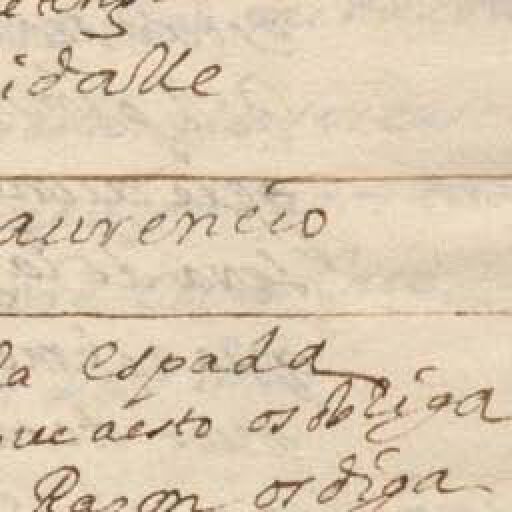 idalle
aurencio
la espada
que aesto os obliga
Razon os diga